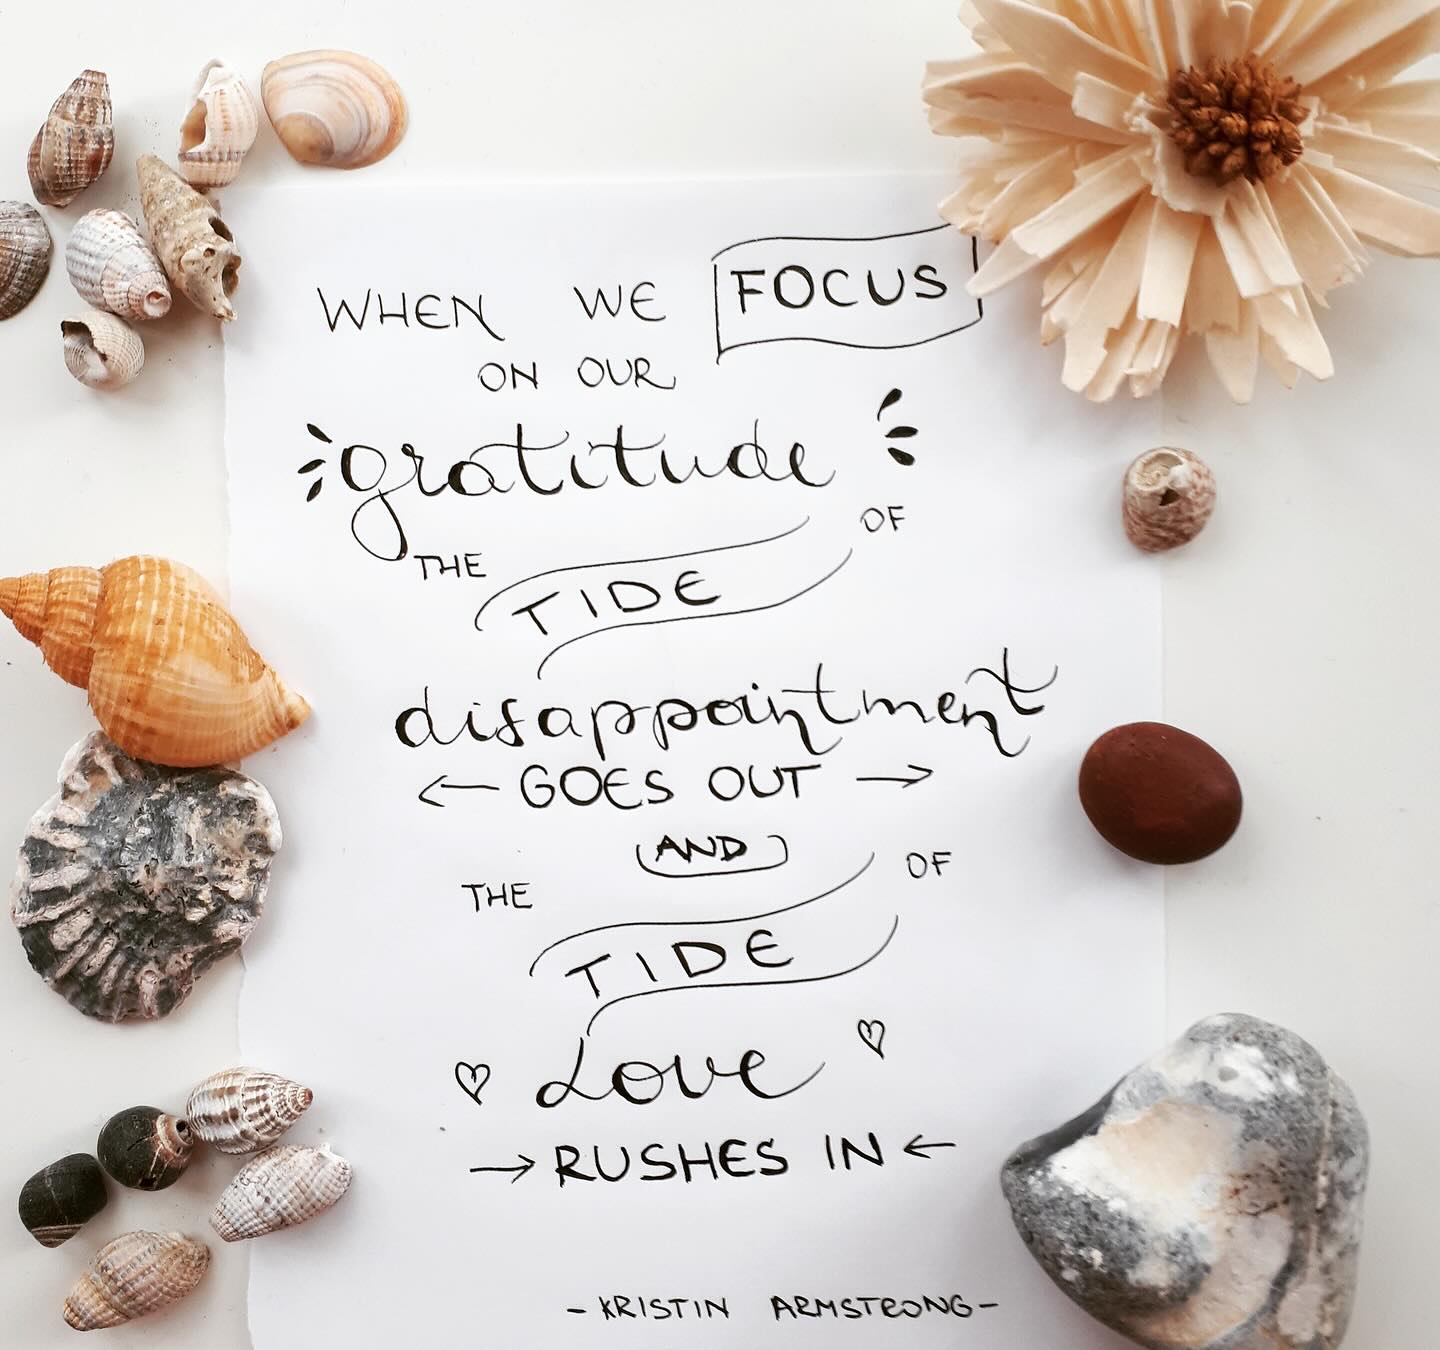 WHEN WE FOCUS
ON OUR
gratitude
THE TIDE OF
disappointment
GOES OUT
AND
THE TIDE OF
Love
RUSHES IN
- KRISTIN ARMSTRONG -